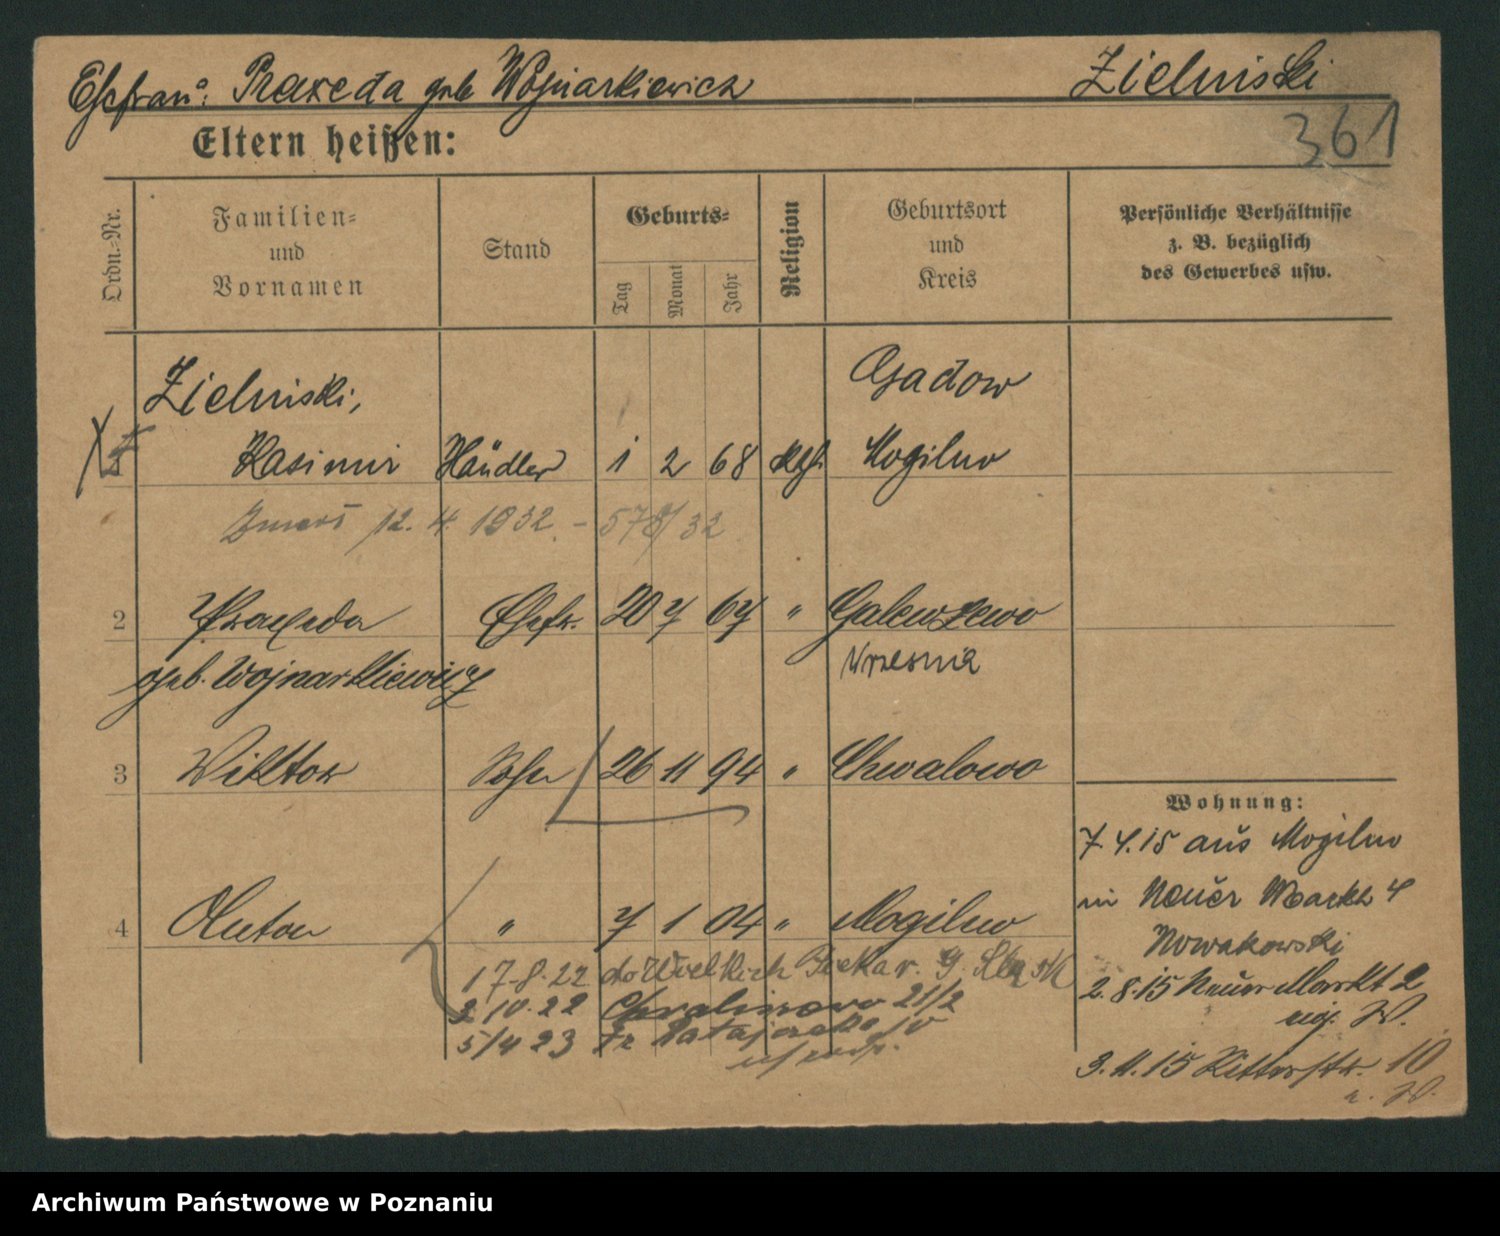 Ehefrau: Praxeda geb Wojnarkiewicz Zielinski
361
Eltern heißen:
Ordn.=Nr.
Familien=
und
Vornamen
Stand
Geburts=
Tag
Monat
Jahr
Religion
Geburtsort
und
Kreis
Persönliche Verhältnisse
z. B. bezüglich
des Gewerbes usw.
Zielinski, Osadow
1 Kasimir Händler 1 2 68 kth. Mogilno
12. 4. 1932. - /32
2 Praxeda Ehefr. 20 7 67 " Galewzewo
geb. Wojnarkiewicz Wrzesnia
3 Wiktor Sohn 26 11 94 " Chwalowo
4 Anton " 7 1 04 " Mogilno
17-8.22 do Wielkich Piekar. 9.
2.10.22 21/2
5/4 23 Fr Ratajczaka 10
Wohnung:
7.4.15 aus Mogilno
in Neuer Markt 4
Nowakowski
2.8.15 Neuer Markt 2
eig. W.
3.11.15 Ritterstr. 10
e. W.
Archiwum Państwowe w Poznaniu